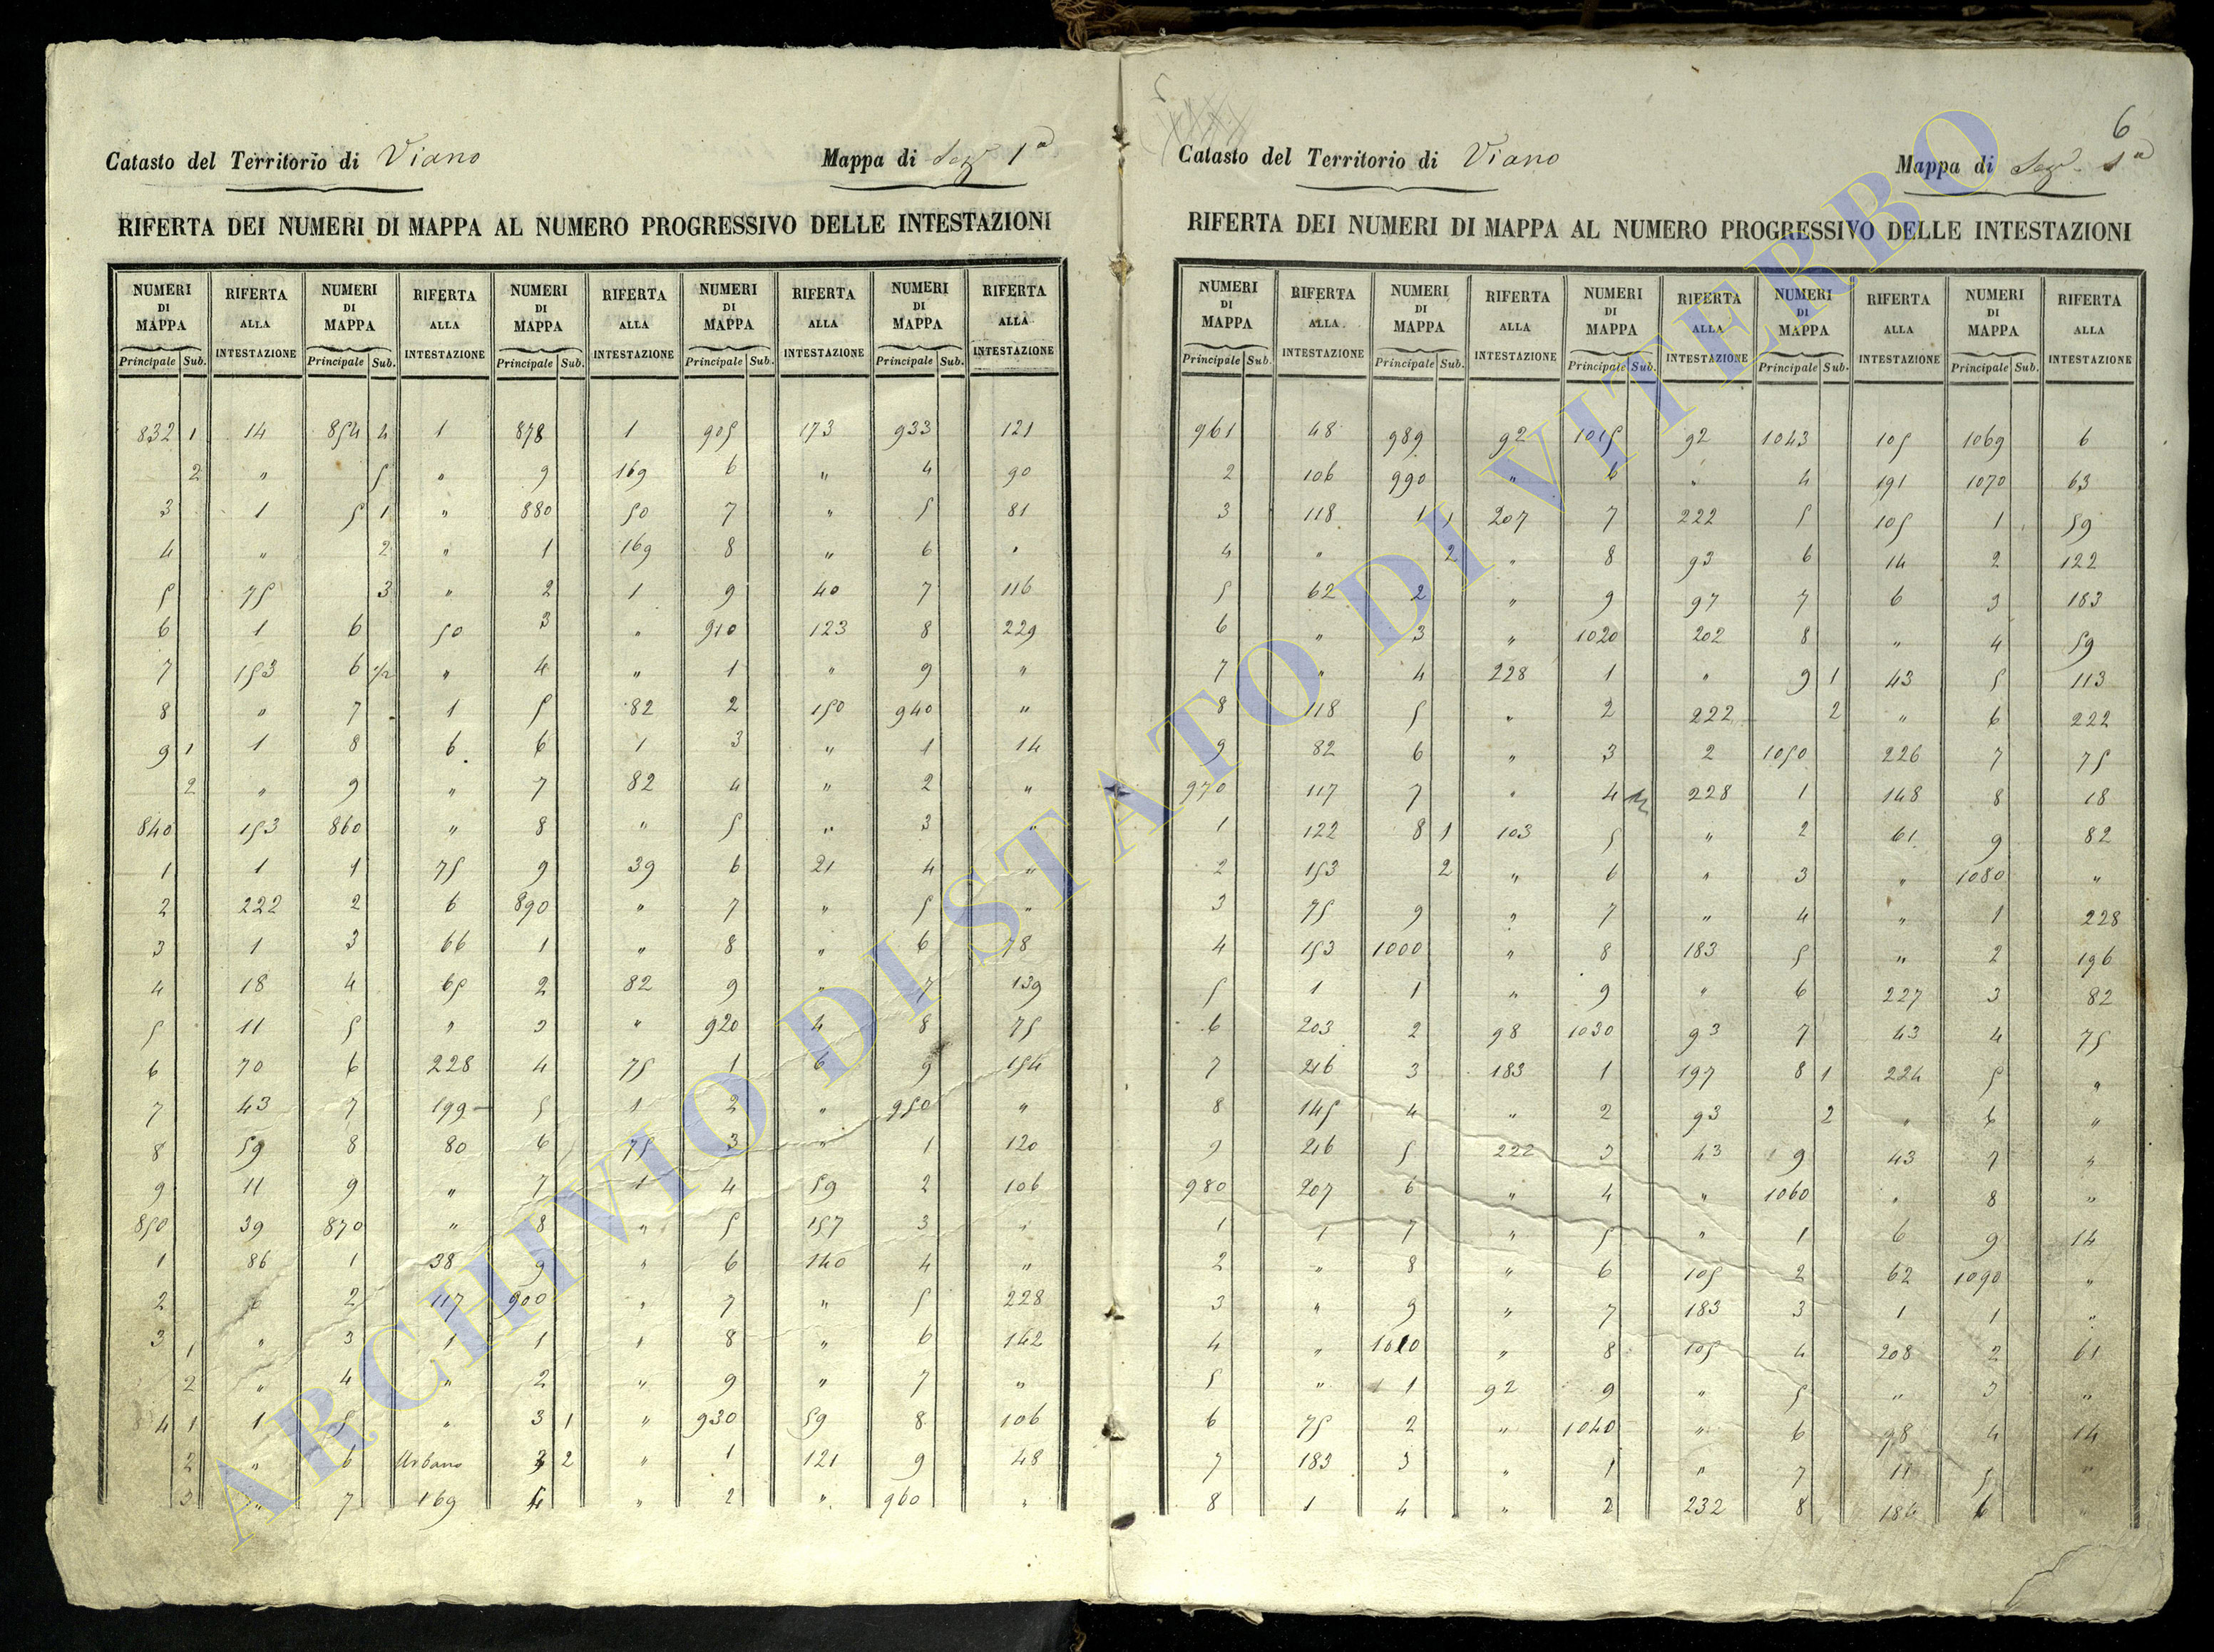 6
Catasto del Territorio di Viano Mappa di Sez 1a
RIFERTA DEI NUMERI DI MAPPA AL NUMERO PROGRESSIVO DELLE INTESTAZIONI
NUMERI DI MAPPA RIFERTA ALLA INTESTAZIONE NUMERI DI MAPPA RIFERTA ALLA INTESTAZIONE NUMERI DI MAPPA RIFERTA ALLA INTESTAZIONE NUMERI DI MAPPA RIFERTA ALLA INTESTAZIONE NUMERI DI MAPPA RIFERTA ALLA INTESTAZIONE
Principale Sub. Principale Sub. Principale Sub. Principale Sub. Principale Sub.
832 1 14 854 4 1 878 1 905 173 933 121
2 " 5 " 9 169 6 " 4 90
3 1 5 1 " 880 50 7 " 5 81
4 " 2 " 1 169 8 " 6 "
5 75 3 " 2 1 9 40 7 116
6 1 6 50 3 " 910 123 8 229
7 153 6 1/2 " 4 " 1 " 9 "
8 " 7 1 5 82 2 150 940 "
9 1 1 8 6 6 1 3 " 1 14
2 " 9 " 7 82 4 " 2 "
840 153 860 " 8 " 5 " 3 "
1 1 1 75 9 39 6 21 4 "
2 222 2 6 890 " 7 " 5 "
3 1 3 66 1 " 8 " 6 78
4 18 4 65 2 82 9 " 7 139
5 11 5 " 3 " 920 4 8 75
6 70 6 228 4 75 1 6 9 154
7 43 7 199 5 1 2 " 950 "
8 59 8 80 6 75 3 " 1 120
9 11 9 " 7 1 4 59 2 106
850 39 870 " 8 " 5 157 3 "
1 86 1 38 9 " 6 140 4 "
2 " 2 117 900 " 7 " 5 228
3 1 " 3 1 1 1 8 " 6 142
2 " 4 " 2 " 9 " 7 "
4 1 1 5 " 3 1 " 930 59 8 106
2 " 6 Urbano 3 2 " 1 121 9 48
3 " 7 169 4 " 2 " 960 "
Catasto del Territorio di Viano Mappa di Sez. 1a
RIFERTA DEI NUMERI DI MAPPA AL NUMERO PROGRESSIVO DELLE INTESTAZIONI
NUMERI DI MAPPA RIFERTA ALLA INTESTAZIONE NUMERI DI MAPPA RIFERTA ALLA INTESTAZIONE NUMERI DI MAPPA RIFERTA ALLA INTESTAZIONE NUMERI DI MAPPA RIFERTA ALLA INTESTAZIONE NUMERI DI MAPPA RIFERTA ALLA INTESTAZIONE
Principale Sub. Principale Sub. Principale Sub. Principale Sub. Principale Sub.
961 48 989 92 1015 92 1043 105 1069 6
2 106 990 " 6 " 4 191 1070 63
3 118 1 1 207 7 222 5 105 1 59
4 " 2 " 8 93 6 14 2 122
5 62 2 " 9 97 7 6 3 183
6 " 3 " 1020 202 8 " 4 59
7 " 4 228 1 " 9 1 43 5 113
8 118 5 " 2 222 2 " 6 222
9 82 6 " 3 2 1050 226 7 75
970 117 7 " 4 228 1 148 8 18
1 122 8 1 103 5 " 2 61 9 82
2 153 2 " 6 " 3 " 1080 "
3 75 9 " 7 " 4 " 1 228
4 153 1000 " 8 183 5 " 2 196
5 1 1 " 9 " 6 227 3 82
6 203 2 98 1030 93 7 43 4 75
7 216 3 183 1 197 8 1 224 5 "
8 145 4 " 2 93 2 " 6 "
9 216 5 222 3 43 9 43 7 "
980 207 6 " 4 " 1060 " 8 "
1 1 7 " 5 " 1 6 9 14
2 " 8 " 6 105 2 62 1090 "
3 " 9 " 7 183 3 1 1 "
4 " 1010 " 8 105 4 208 2 61
5 " 1 92 9 " 5 " 3 "
6 75 2 " 1040 " 6 98 4 14
7 183 3 " 1 " 7 11 5 "
8 1 4 " 2 232 8 184 6 "
ARCHIVIO DI STATO DI VITERBO